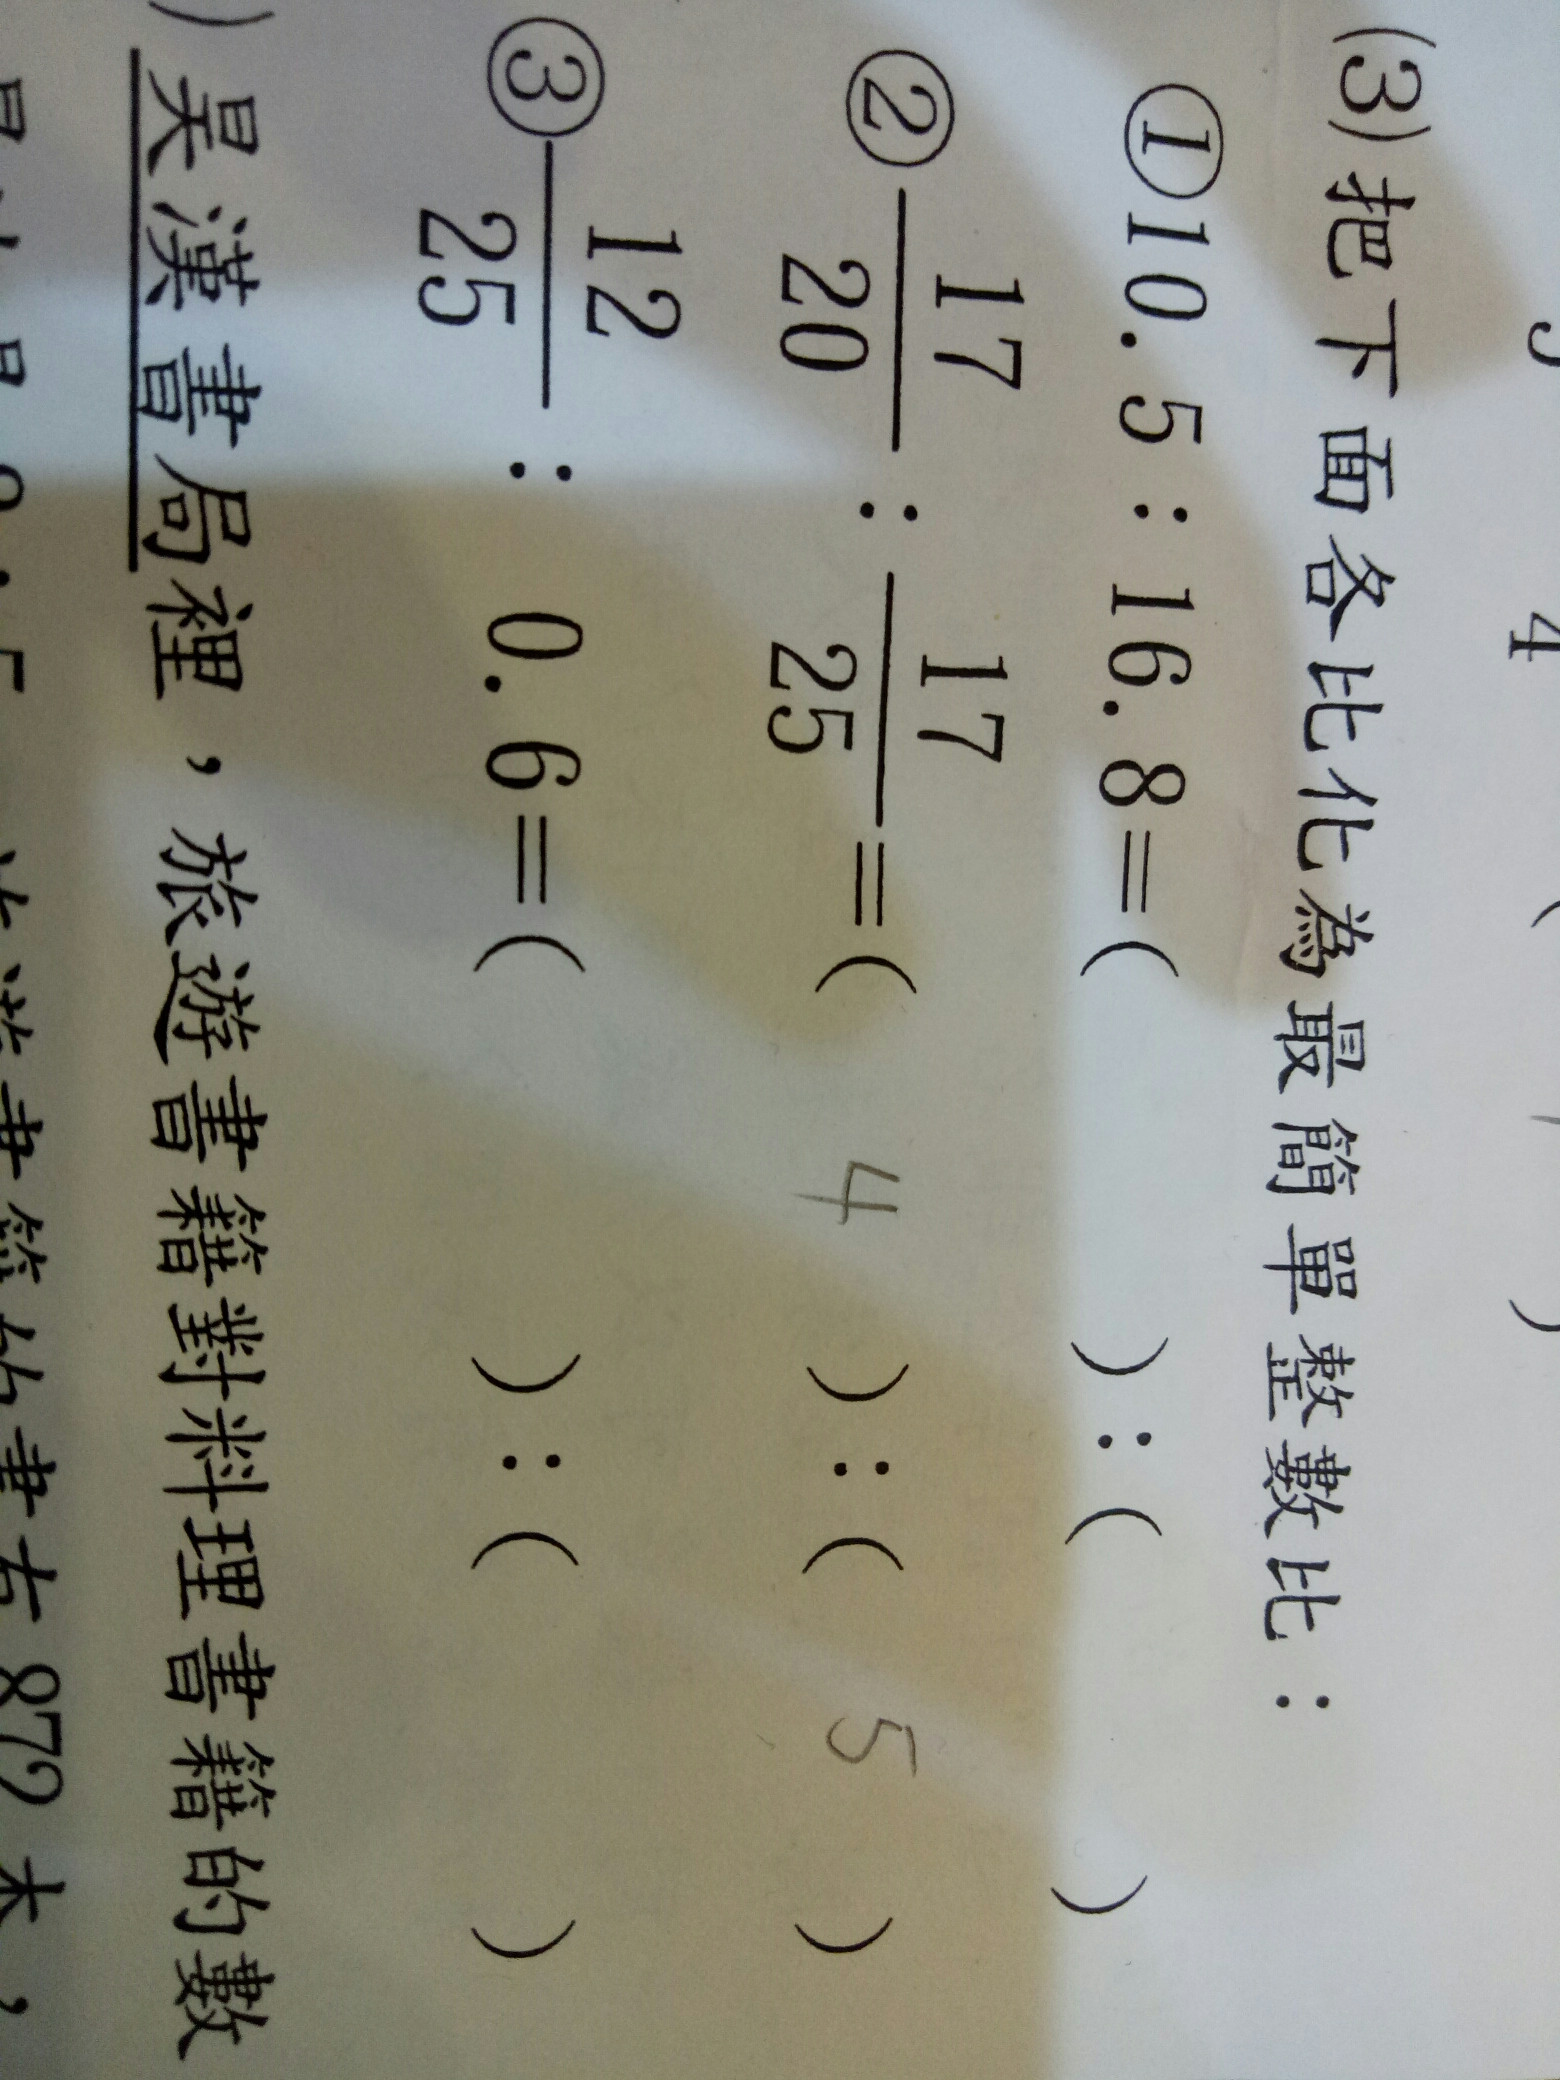 (3)把下面各比化為最簡單整數比：
①10.5：16.8=( )：( )
②17/20：17/25=( 4 )：( 5 )
③12/25：0.6=( )：( )
昊漢書局裡，旅遊書籍對料理書籍的數